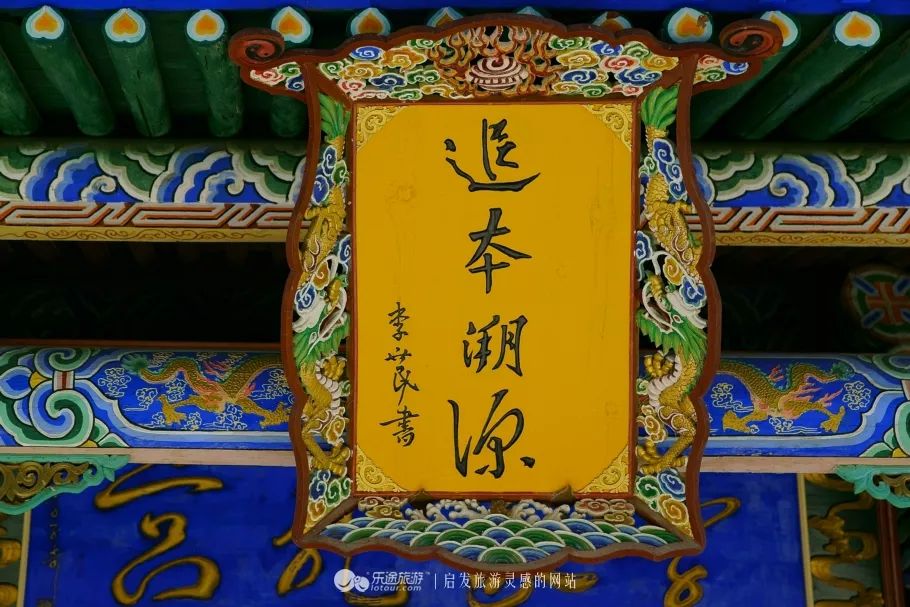 追本溯源
李世民書
乐途旅游 lotour.com | 启发旅游灵感的网站